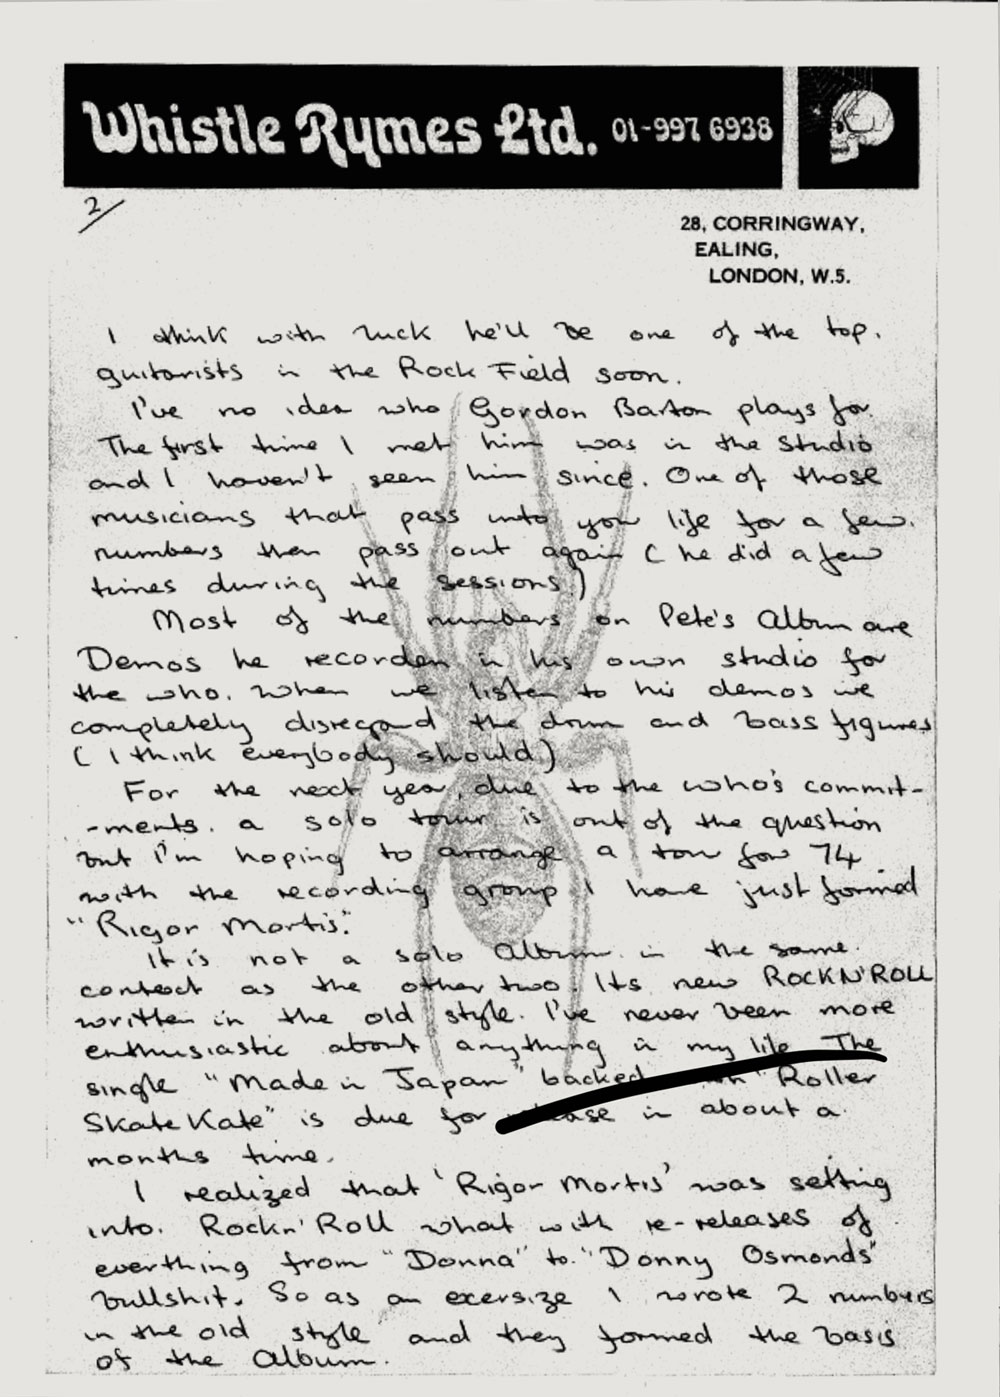 Whistle Rymes Ltd. 01-997 6938
2
28, CORRINGWAY,
EALING,
LONDON, W.5.
I think with luck he'll be one of the top.
guitarists in the Rock Field soon.
I've no idea who Gordon Barton plays for.
The first time I met him was in the studio
and I haven't seen him since. One of those
musicians that pass into your life for a few.
numbers then pass out again ( he did a few
times during the sessions)
Most of the numbers on Pete's Album are
Demos he recorded in his own studio for
the who. When we listen to his demos we
completely disregard the drum and bass figures
( I think everybody should)
For the next year, due to the who's commit-
-ments. a solo tour is out of the question
but I'm hoping to arrange a tour for 74
with the recording group I have just formed
"Rigor Mortis".
It is not a solo Album. in the same.
context as the other two. Its new ROCKN'ROLL
written in the old style. I've never been more
enthusiastic about anything in my life The
single "Made in Japan" backed "Roller
Skate Kate" is due for in about a.
months time.
I realized that 'Rigor Mortis' was setting
into. Rockn' Roll what with re-releases of
everthing from "Donna" to. "Donny Osmonds"
bullshit. So as an exersize I wrote 2 numbers
in the old style and they formed the basis
of the Album.